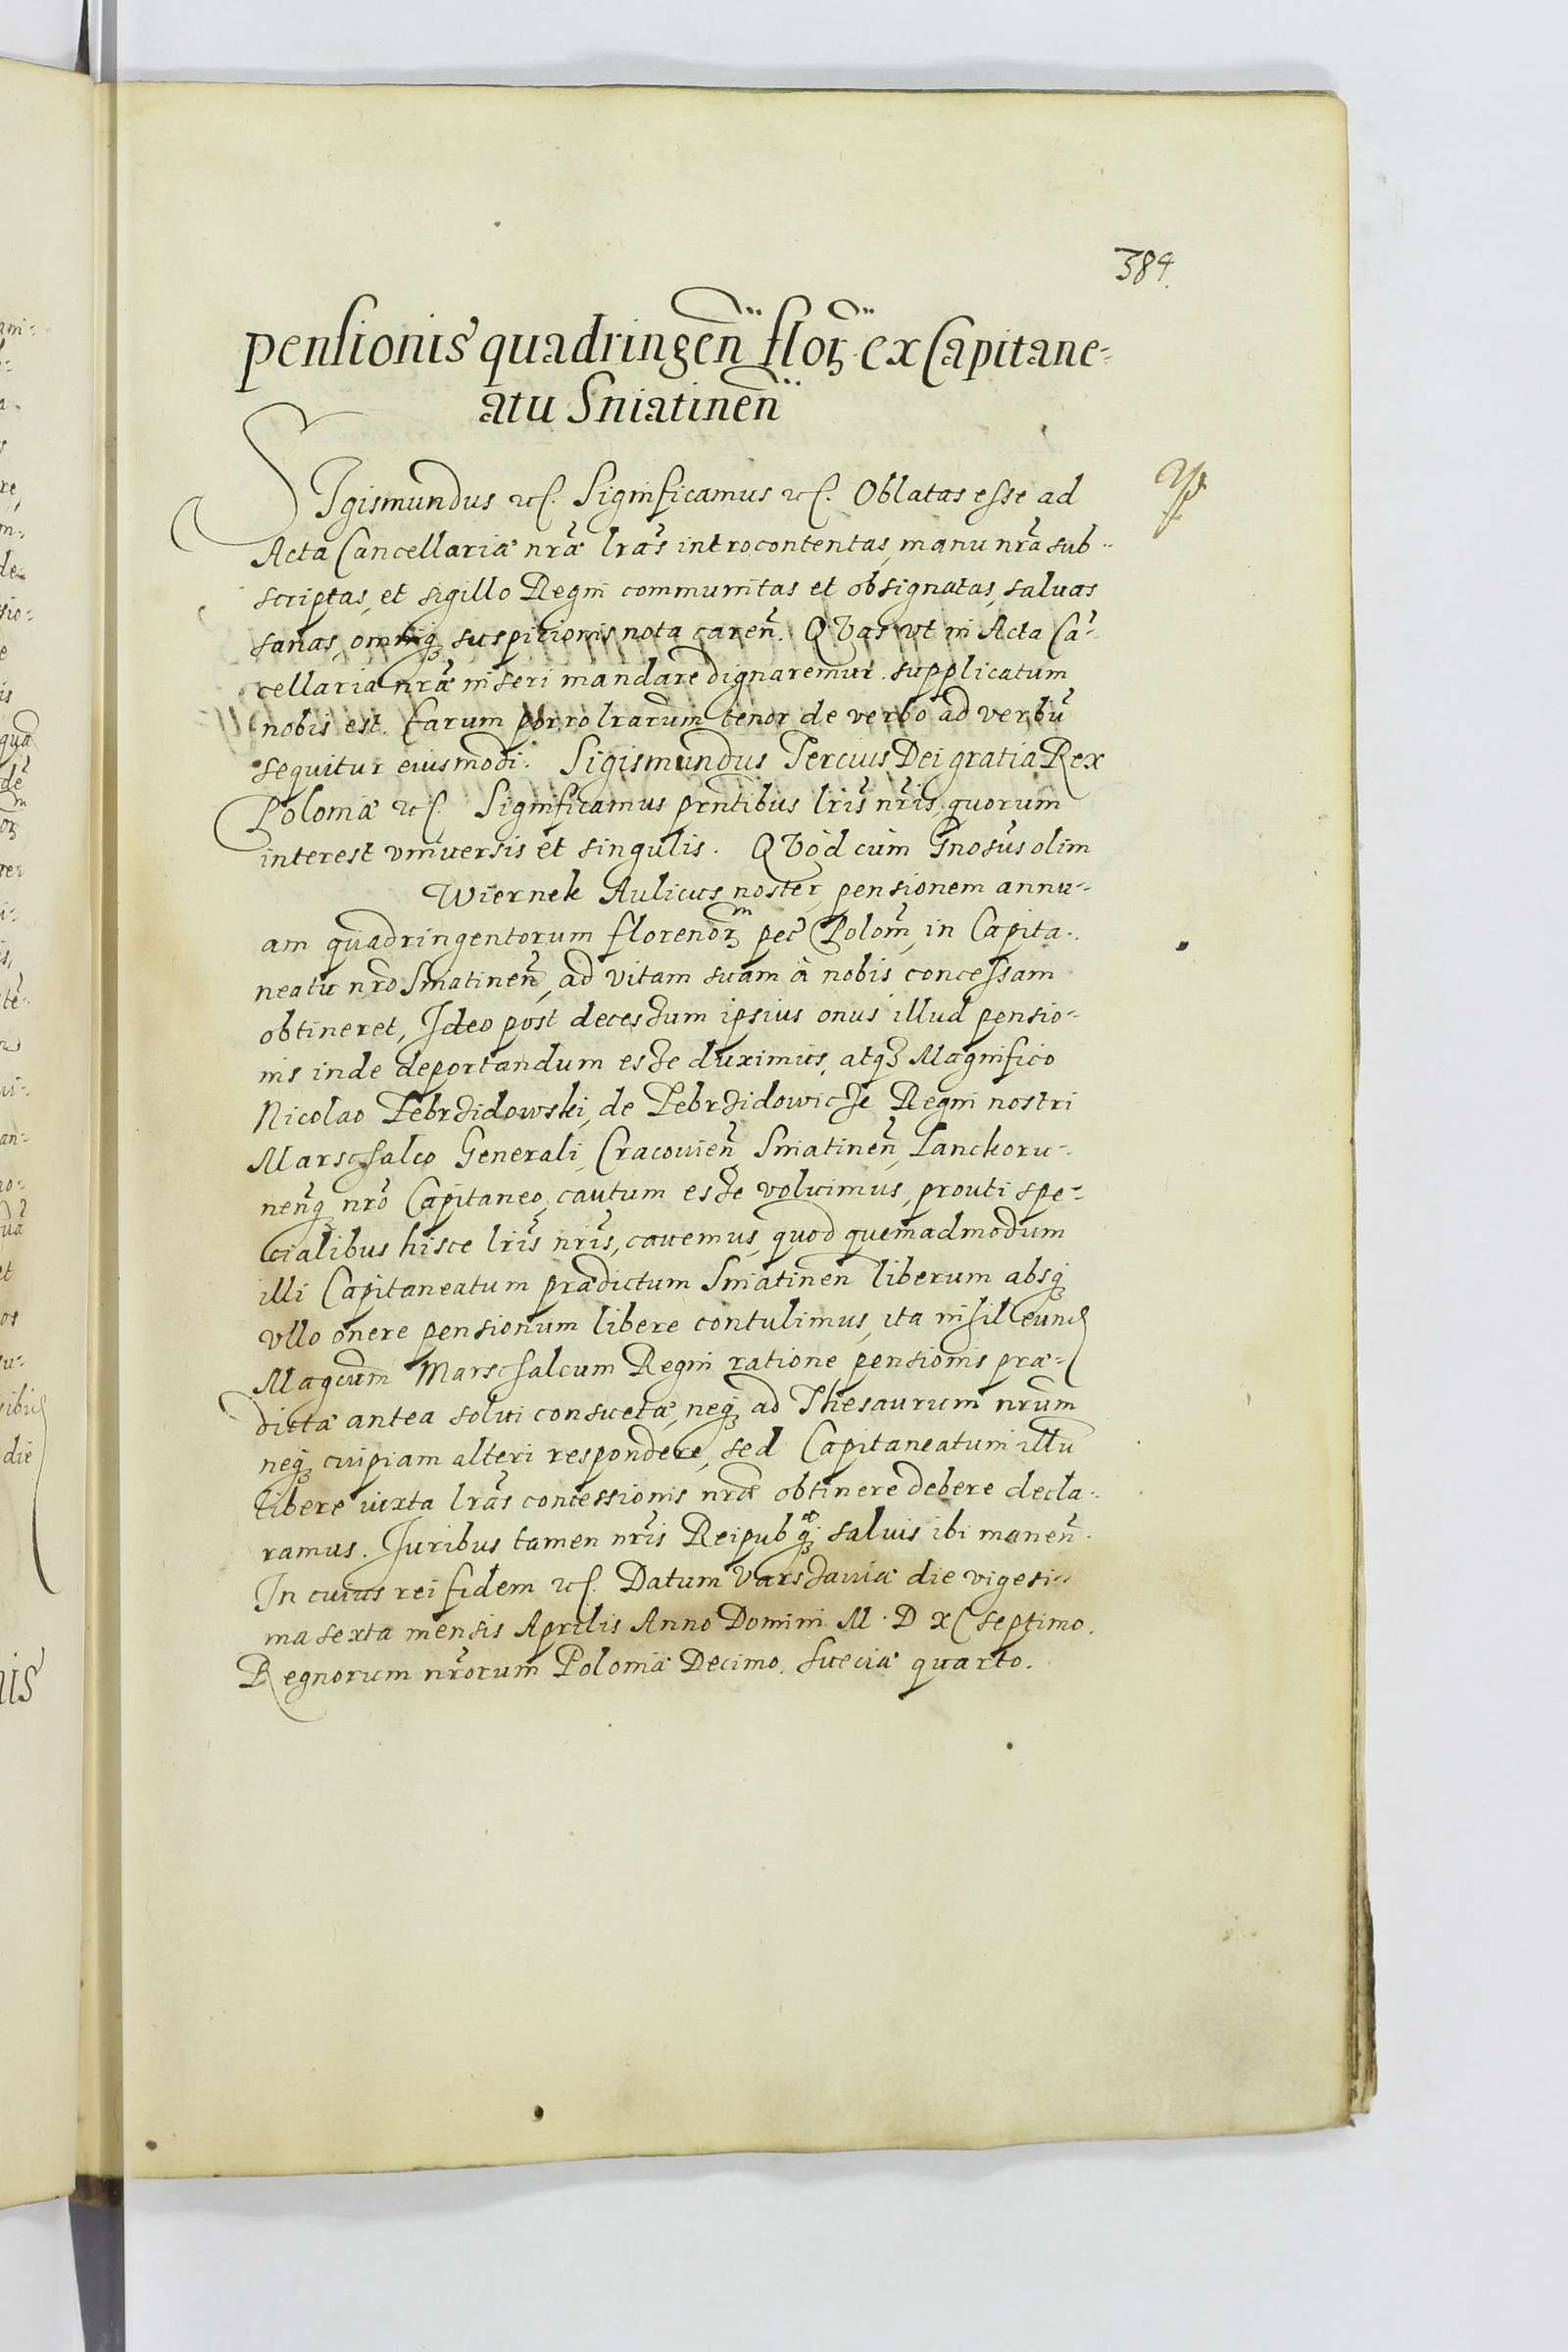 384.
pensionis quadringeñ floꝝ ex Capitane=
atu Sniatineñ
SIgismundus etc. Significamus etc. Oblatas esse ad
Acta Cancellariæ nr̃æ lr̃as introcontentas, manu nr̃a sub=
scriptas, et sigillo Regni communitas et obsignatas, saluas
sanas, omniq̃ suspitionis nota careñ. QVas vt in Acta Cã=
cellariæ nr̃æ inseri mandare dignaremur supplicatum
nobis est. Earum porro lrarum tenor de verbo ad verbũ
sequitur eiusmodi. Sigismundus Tercius Dei gratia Rex
Poloniæ etc. Significamus prñtibus lr̃is nr̃is, quorum
interest vniuersis et singulis. QVòd cùm Gnosus olim
Wiernek Aulicus noster, pensionem annu=
am quadringentorum florenoꝝ pec̃ Poloñ, in Capita=
neatu nr̃o Sniatineñ, ad vitam suam à nobis concessam
obtineret, Ideo post decessum ipsius onus illud pensio=
nis inde deportandum esse duximus, atqꝫ Magnifico
Nicolao Zebrzidowski, de Zebrzidowicze Regni nostri
Marschalco Generali, Cracouieñ, Sniatineñ, Lanckoru=
neñq̃ nr̃o Capitaneo, cautum esse voluimus, prouti spe=
cialibus hisce lr̃is nr̃is, cauemus, quod quemadmodum
illi Capitaneatum prædictum Sniatineñ liberum absq̃
vllo onere pensionum libere contulimus, ita nihil eund
Magcum Marschalcum Regni ratione pensionis præ=
dictæ antea solui consuetæ, neq̃ ad Thesaurum nrũm
neq̃ cuipiam alteri respondere, sed Capitaneatum illũ
libere iuxta lr̃as concessionis nr̃æ obtinere debere decla=
ramus. Iuribus tamen nr̃is Reipub q̃ saluis ibi maneñ.
In cuius rei fidem etc. Datum Varsauiæ die vigesi=
ma sexta mensis Aprilis Anno Domini M. D XC septimo.
Regnorum nr̃orum Poloniæ Decimo. Sueciæ quarto.